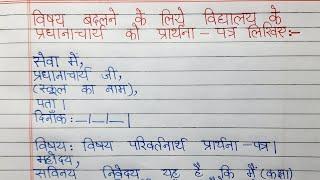 विषय बदलने के लिये विद्यालय के
प्रधानाचार्य को प्रार्थना-पत्र लिखिए:-
सेवा में,
प्रधानाचार्य जी,
(स्कूल का नाम),
पता।
दिनाँक:__/__/__।
विषय: विषय परिवर्तनार्थ प्रार्थना-पत्र।
महोदय,
सविनय निवेदन यह है, कि मैं (कक्षा)